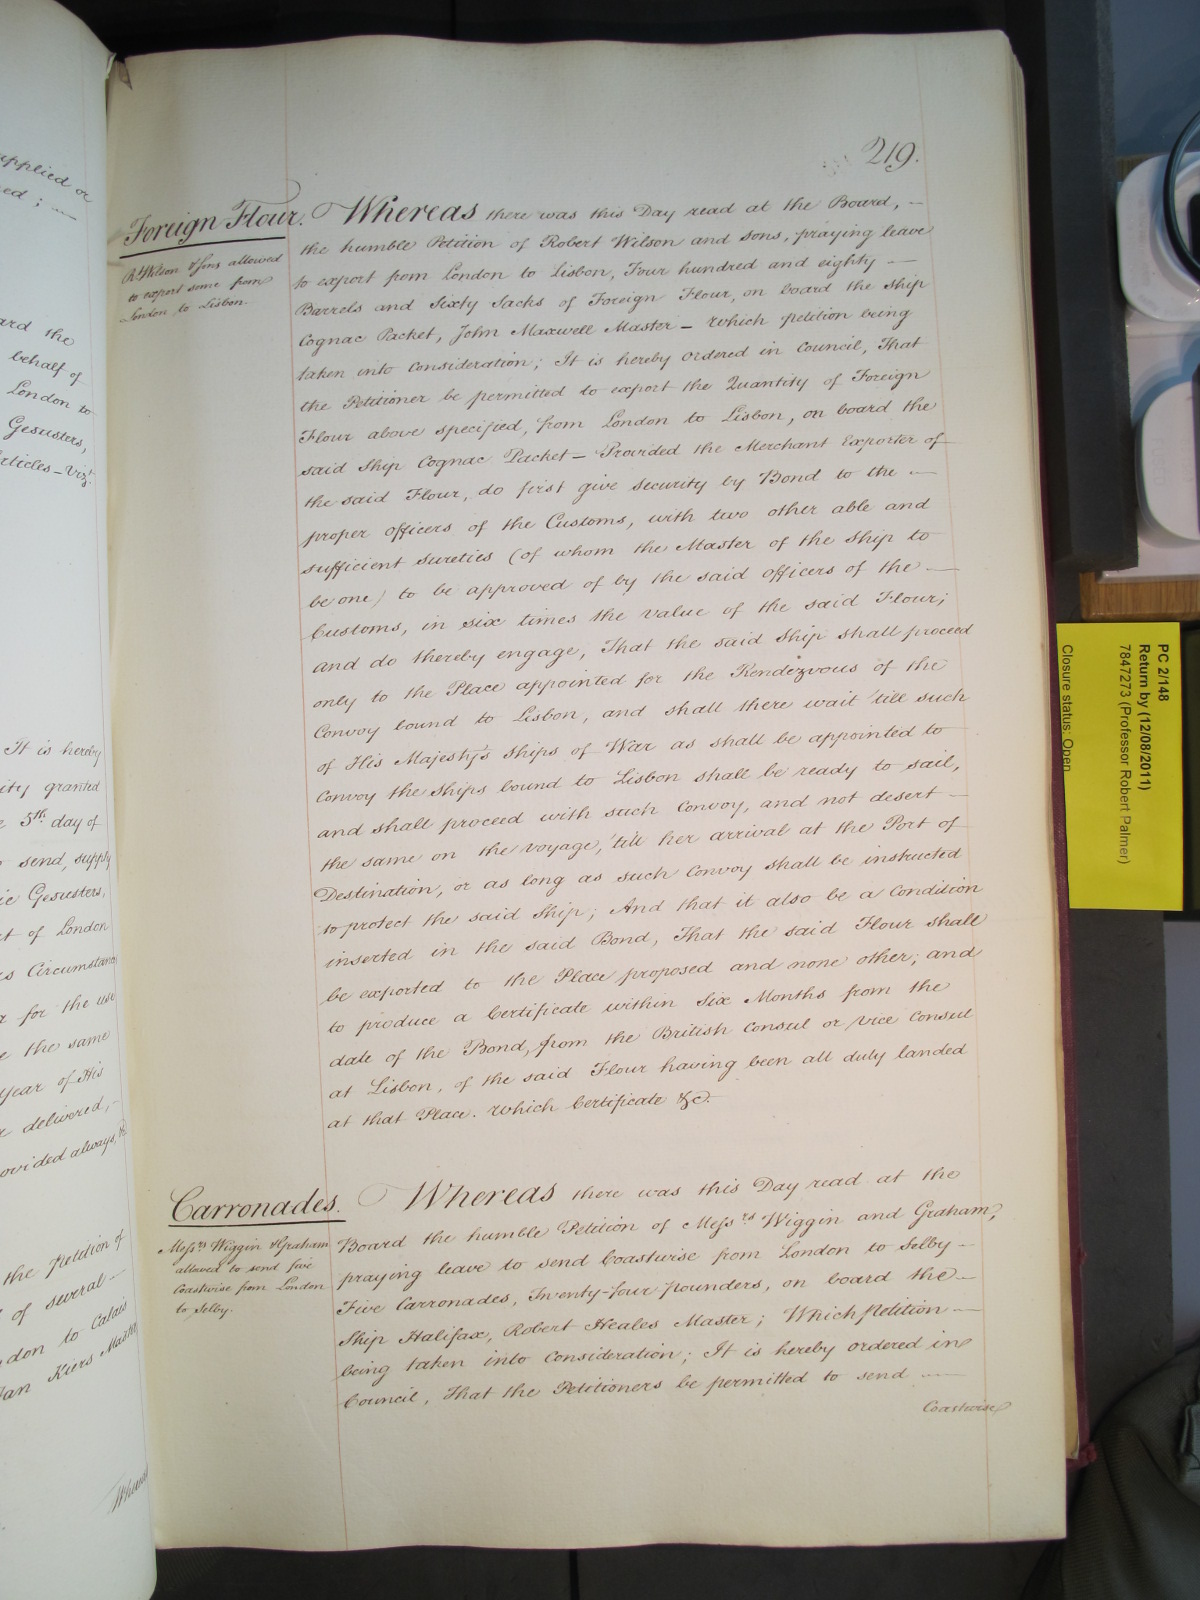 219.
Foreign Flour.
Rt Wilson & Sons allowed
to export some from
London to Lisbon.
Whereas there was this Day read at the Board, —
the humble Petition of Robert Wilson and Sons, praying leave
to export from London to Lisbon, Four hundred and eighty —
Barrels and Sixty Sacks of Foreign Flour, on board the Ship
Cognac Packet, John Maxwell Master — Which petition being
taken into Consideration; It is hereby ordered in Council, That
the Petitioner be permitted to export the Quantity of Foreign
Flour above specified, from London to Lisbon, on board the
said Ship Cognac Packet — Provided the Merchant Exporter of
the said Flour, do first give security by Bond to the —
proper officers of the Customs, with two other able and
sufficient sureties (of whom the Master of the Ship to
be one) to be approved of by the said officers of the —
Customs, in six times the value of the said Flour;
and do thereby engage, That the said Ship shall proceed
only to the Place appointed for the Rendezvous of the
Convoy bound to Lisbon, and shall there wait 'till such
of His Majesty's Ships of War as shall be appointed to
Convoy the Ships bound to Lisbon shall be ready to sail,
and shall proceed with such Convoy, and not desert —
the same on the voyage, 'till her arrival at the Port of
Destination, or as long as such Convoy shall be instructed
to protect the said Ship; And that it also be a Condition
inserted in the said Bond, That the said Flour shall
be exported to the Place proposed and none other; and
to produce a Certificate within Six Months from the
date of the Bond, from the British Consul or Vice Consul
at Lisbon, of the said Flour having been all duly landed
at that Place. Which Certificate &c.
Carronades.
Messrs Wiggin & Graham
allowed to send five
Coastwise from London
to Selby.
Whereas there was this Day read at the
Board the humble Petition of Messrs Wiggin and Graham,
praying leave to send Coastwise from London to Selby —
Five Carronades, Twenty-four pounders, on board the —
Ship Halifax, Robert Heales Master; Which Petition —
being taken into Consideration; It is hereby ordered in
Council, That the Petitioners be permitted to send —
Coastwise
applied or
ed; —
ard the
behalf of
London to
Gesusters,
rticles — Vizt
It is hereby
ity granted
5th day of
send, supply
Gesusters,
of London
Circumstance
for the use
the same
Year of His
delivered, -
ovided always, &c
the Petition of
of several —
don to Calais
Van Kiers Master
PC 2/148
Return by (12/08/2011)
7847273 (Professor Robert Palmer)
Closure status: Open